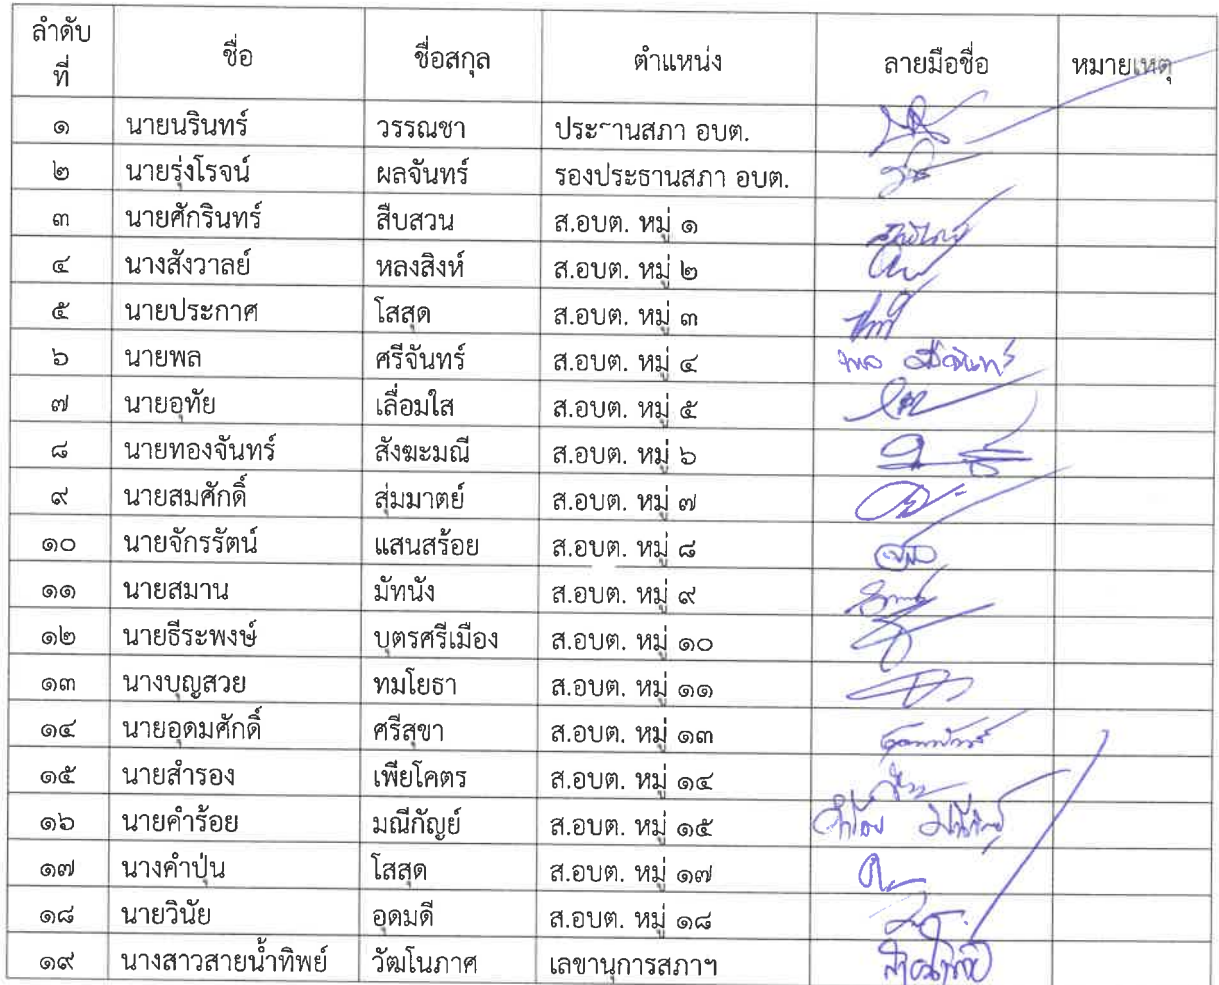 ลำดับที่ ชื่อ ชื่อสกุล ตำแหน่ง ลายมือชื่อ หมายเหตุ
๑ นายนรินทร์ วรรณชา ประธานสภา อบต.
๒ นายรุ่งโรจน์ ผลจันทร์ รองประธานสภา อบต.
๓ นายศักรินทร์ สืบสวน ส.อบต. หมู่ ๑
๔ นางสังวาลย์ หลงสิงห์ ส.อบต. หมู่ ๒
๕ นายประกาศ โสสุด ส.อบต. หมู่ ๓
๖ นายพล ศรีจันทร์ ส.อบต. หมู่ ๔
๗ นายอุทัย เลื่อมใส ส.อบต. หมู่ ๕
๘ นายทองจันทร์ สังฆะมณี ส.อบต. หมู่ ๖
๙ นายสมศักดิ์ สุ่มมาตย์ ส.อบต. หมู่ ๗
๑๐ นายจักรรัตน์ แสนสร้อย ส.อบต. หมู่ ๘
๑๑ นายสมาน มัทนัง ส.อบต. หมู่ ๙
๑๒ นายธีระพงษ์ บุตรศรีเมือง ส.อบต. หมู่ ๑๐
๑๓ นางบุญสวย ทมโยธา ส.อบต. หมู่ ๑๑
๑๔ นายอุดมศักดิ์ ศรีสุขา ส.อบต. หมู่ ๑๓
๑๕ นายสำรอง เพียโคตร ส.อบต. หมู่ ๑๔
๑๖ นายคำร้อย มณีกัญย์ ส.อบต. หมู่ ๑๕
๑๗ นางคำปุ่น โสสุด ส.อบต. หมู่ ๑๗
๑๘ นายวินัย อุดมดี ส.อบต. หมู่ ๑๘
๑๙ นางสาวสายน้ำทิพย์ วัฒโนภาศ เลขานุการสภาฯ